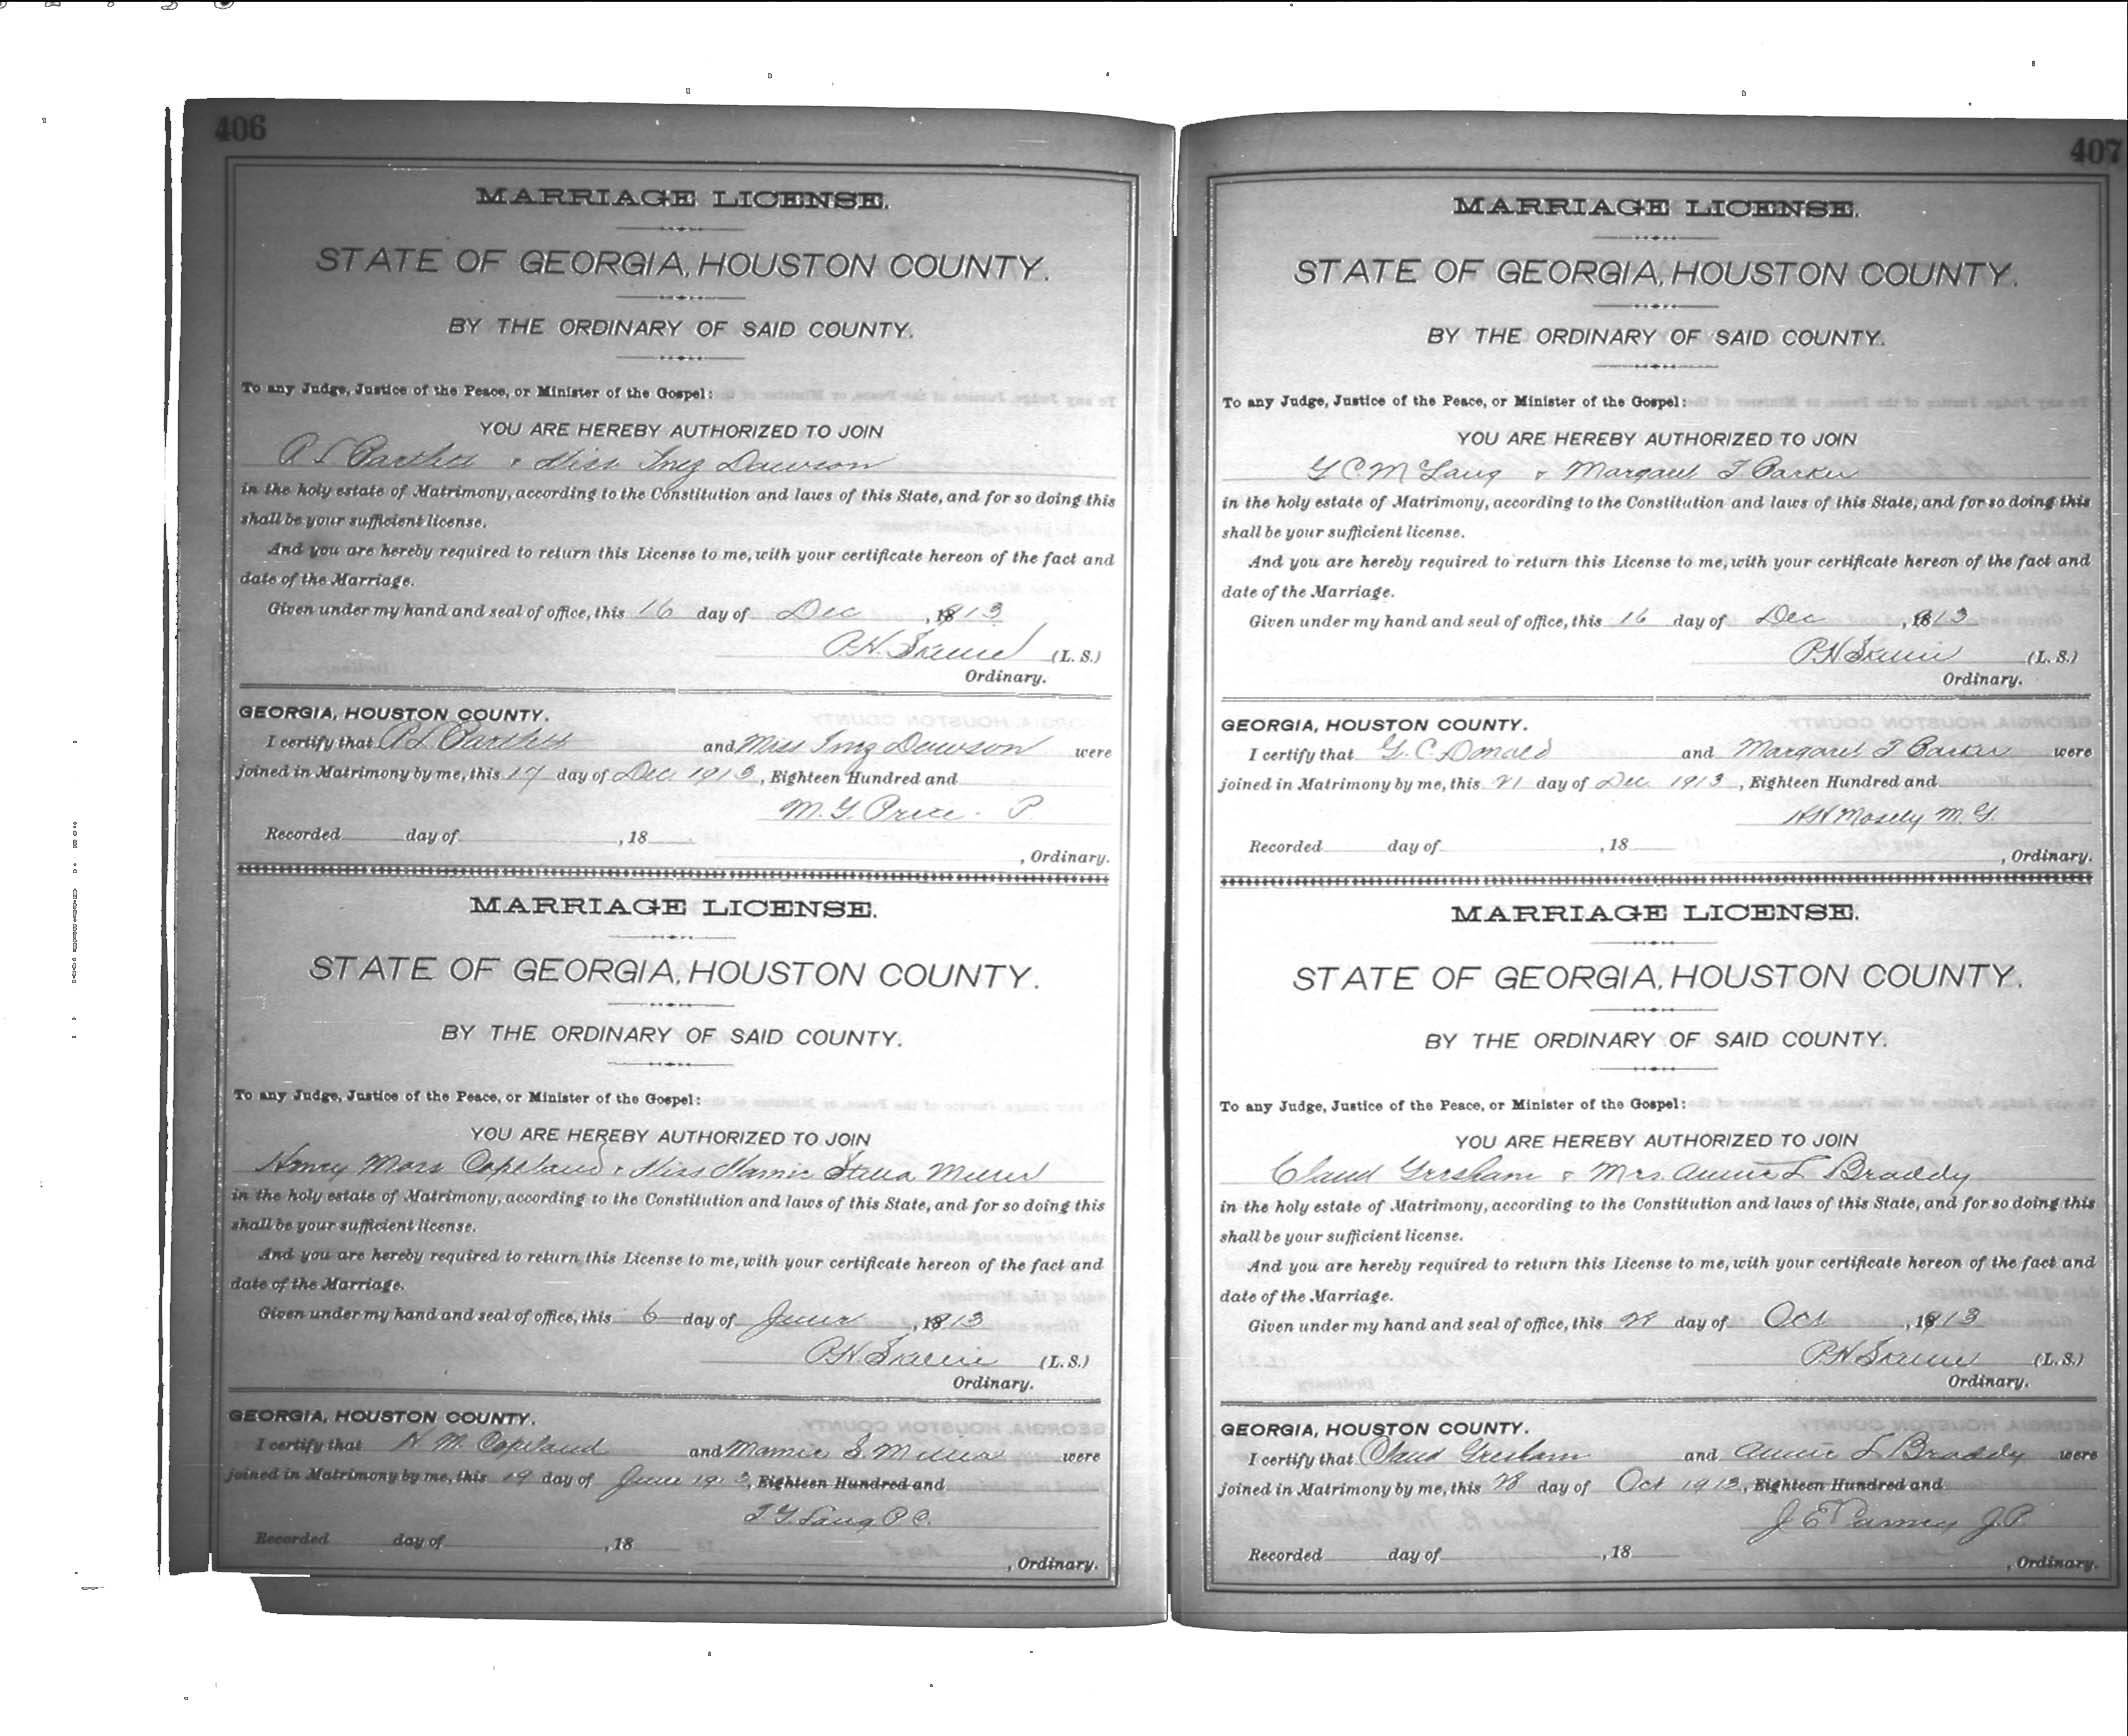 406
MARRIAGE LICENSE.
STATE OF GEORGIA, HOUSTON COUNTY.
BY THE ORDINARY OF SAID COUNTY.
To any Judge, Justice of the Peace, or Minister of the Gospel:
YOU ARE HEREBY AUTHORIZED TO JOIN
& Miss Inez Dawson
in the holy estate of Matrimony, according to the Constitution and laws of this State, and for so doing this
shall be your sufficient license.
And you are hereby required to return this License to me, with your certificate hereon of the fact and
date of the Marriage.
Given under my hand and seal of office, this 16 day of Dec, 1913
(L. S.)
Ordinary.
GEORGIA, HOUSTON COUNTY.
I certify that and Miss Inez Dawson were
joined in Matrimony by me, this 17 day of Dec 1913, Eighteen Hundred and
M. G. Price
Recorded day of , 18
, Ordinary.
MARRIAGE LICENSE.
STATE OF GEORGIA, HOUSTON COUNTY.
BY THE ORDINARY OF SAID COUNTY.
To any Judge, Justice of the Peace, or Minister of the Gospel:
YOU ARE HEREBY AUTHORIZED TO JOIN
Henry Moss Copeland & Miss Mamie Miller
in the holy estate of Matrimony, according to the Constitution and laws of this State, and for so doing this
shall be your sufficient license.
And you are hereby required to return this License to me, with your certificate hereon of the fact and
date of the Marriage.
Given under my hand and seal of office, this 6 day of June, 1913
(L. S.)
Ordinary.
GEORGIA, HOUSTON COUNTY.
I certify that H. M. Copeland and Mamie S. Miller were
joined in Matrimony by me, this 19 day of June 1913, Eighteen Hundred and
Recorded day of , 18
, Ordinary.
407
MARRIAGE LICENSE.
STATE OF GEORGIA, HOUSTON COUNTY.
BY THE ORDINARY OF SAID COUNTY.
To any Judge, Justice of the Peace, or Minister of the Gospel:
YOU ARE HEREBY AUTHORIZED TO JOIN
G. C. & Margaret T. Parker
in the holy estate of Matrimony, according to the Constitution and laws of this State, and for so doing this
shall be your sufficient license.
And you are hereby required to return this License to me, with your certificate hereon of the fact and
date of the Marriage.
Given under my hand and seal of office, this 16 day of Dec, 1913
(L. S.)
Ordinary.
GEORGIA, HOUSTON COUNTY.
I certify that G. C. Donald and Margaret T Parker were
joined in Matrimony by me, this 21 day of Dec 1913, Eighteen Hundred and
Mosely M. G.
Recorded day of , 18
, Ordinary.
MARRIAGE LICENSE.
STATE OF GEORGIA, HOUSTON COUNTY.
BY THE ORDINARY OF SAID COUNTY.
To any Judge, Justice of the Peace, or Minister of the Gospel:
YOU ARE HEREBY AUTHORIZED TO JOIN
Claud Gresham & Mrs. Annie L Braddy
in the holy estate of Matrimony, according to the Constitution and laws of this State, and for so doing this
shall be your sufficient license.
And you are hereby required to return this License to me, with your certificate hereon of the fact and
date of the Marriage.
Given under my hand and seal of office, this day of Oct, 1913
(L. S.)
Ordinary.
GEORGIA, HOUSTON COUNTY.
I certify that Claud Gresham and Annie L Braddy were
joined in Matrimony by me, this 28 day of Oct 1913, Eighteen Hundred and
J. P.
Recorded day of , 18
, Ordinary.